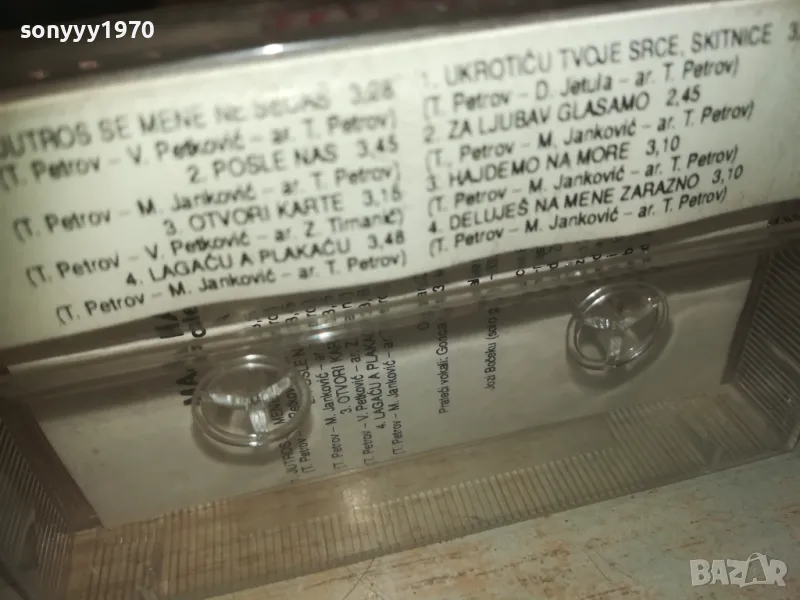 sonyyy1970
JUTROS SE MENE NE SEĆAŠ 3,28
(T. Petrov – V. Petković – ar. T. Petrov)
2. POSLE NAS 3,45
(T. Petrov – M. Janković – ar. T. Petrov)
3. OTVORI KARTE 3,15
(T. Petrov – V. Petković – ar. Z. Timanić)
4. LAGAĆU A PLAKAĆU 3,48
(T. Petrov – M. Janković – ar. T. Petrov)
1. UKROTIĆU TVOJE SRCE, SKITNICE 3,
(T. Petrov – D. Jetula – ar. T. Petrov)
2. ZA LJUBAV GLASAMO 2,45
(T. Petrov – M. Janković – ar. T. Petrov)
3. HAJDEMO NA MORE 3,10
(T. Petrov – M. Janković – ar. T. Petrov)
4. DELUJEŠ NA MENE ZARAZNO 3,10
(T. Petrov – M. Janković – ar. T. Petrov)
JUTROS MENE
(T. Petrov
(T. Petrov – M. Janković – ar.
3. OTVORI KAR
(T. Petrov – V. Petković – ar. Z
4. LAGAĆU A PLAKAĆU
(T. Petrov – M. Janković – ar.
Prateći vokali: Gorica
BAZAR